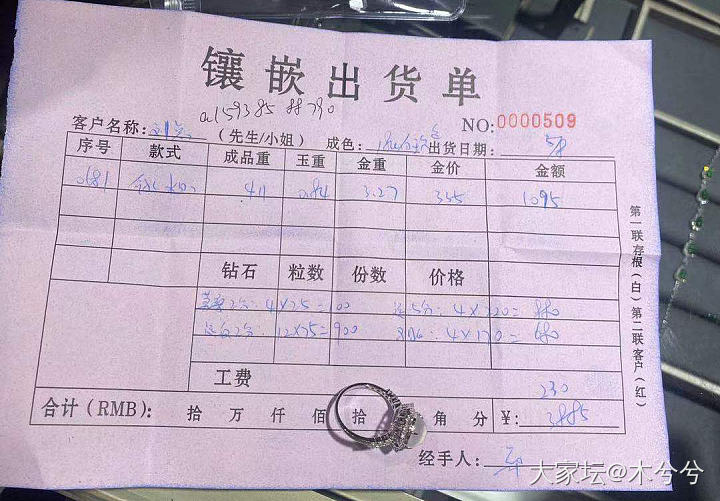 镶嵌出货单
a159385 88790
NO: 0000509
客户名称: (先生/小姐) 成色: 出货日期:
序号 款式 成品重 玉重 金重 金价 金额
0681 4.11 0.84 3.27 335 1095
钻石 粒数 份数 价格
2分: 4×25=100 5分: 4×220=880
2分: 12×75=900 4×170=680
工费 230
合计(RMB): 拾 万 仟 佰 拾 角 分 ¥: 3885
经手人:
第一联存根(白)第二联客户(红)
大家坛@木兮兮